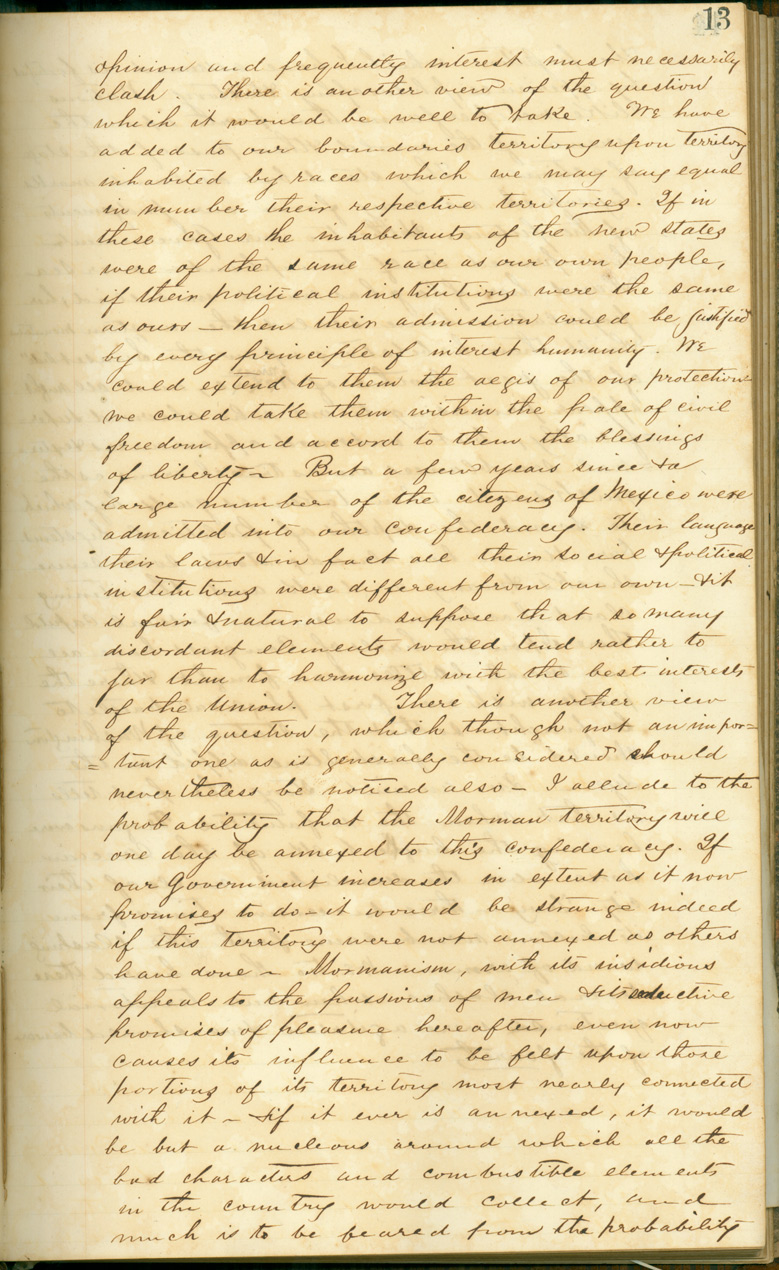 13
opinion and frequently interest must necessarily
clash. There is another view of the question
which it would be well to take. We have
added to our boundaries territory upon territory
inhabited by races which we may say equal
in number their respective territories. If in
these cases the inhabitants of the new states
were of the same race as our own people,
if their political institutions were the same
as ours — then their admission could be justified
by every principle of interest humanity. We
could extend to them the aegis of our protection
we could take them within the pale of civil
freedom and accord to them the blessings
of liberty — But a few years since & a
large number of the citizens of Mexico were
admitted into our confederacy. Their language
their laws & in fact all their social & political
institutions were different from our own — & it
is fair & natural to suppose that so many
discordant elements would tend rather to
jar than to harmonize with the best interests
of the Union. There is another view
of the question, which though not an impor=
=tant one as is generally considered should
nevertheless be noticed also — I allude to the
probability that the Morman territory will
one day be annexed to this confederacy. If
our Government increases in extent as it now
promises to do — it would be strange indeed
if this territory were not annexed as others
have done — Mormanism, with its insidious
appeals to the passions of men & its seductive
promises of pleasure hereafter, even now
causes its influence to be felt upon those
portions of its territory most nearly connected
with it — & if it ever is annexed, it would
be but a nucleous around which all the
bad characters and combustible elements
in the country would collect, and
much is to be feared from the probability